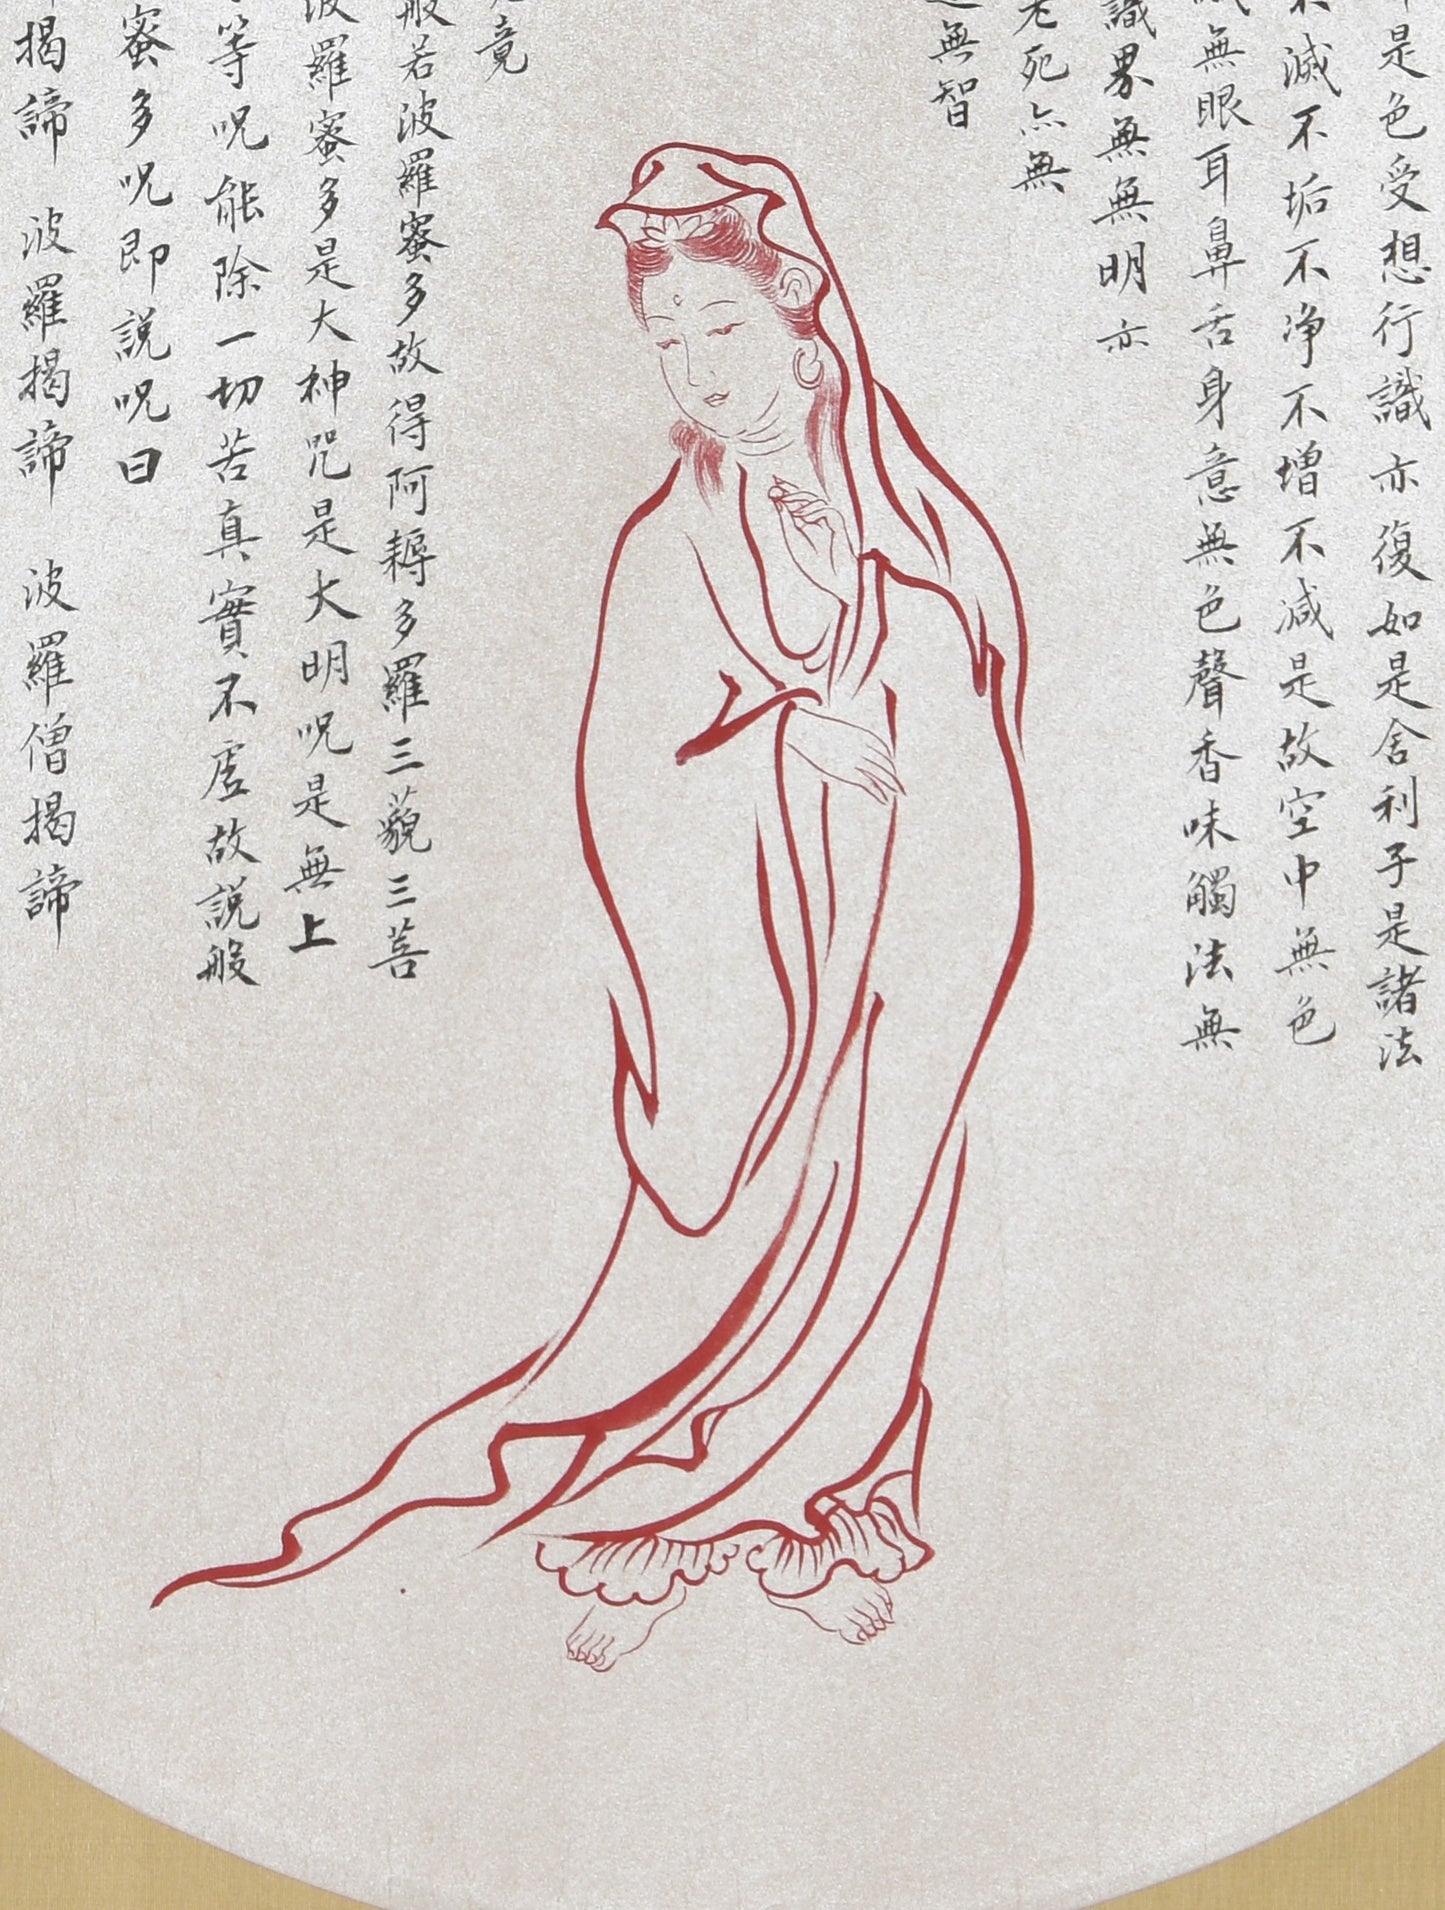 是色受想行識亦復如是舍利子是諸法
滅不垢不净不增不減是故空中無色
無眼耳鼻舌身意無色聲香味觸法無
識界無無明亦
老死亦無
無智
竟
般若波羅蜜多故得阿耨多羅三藐三菩
波羅蜜多是大神咒是大明呪是無上
等呪能除一切苦真實不虛故説般
蜜多呪即説呪曰
揭諦 波羅揭諦 波羅僧揭諦